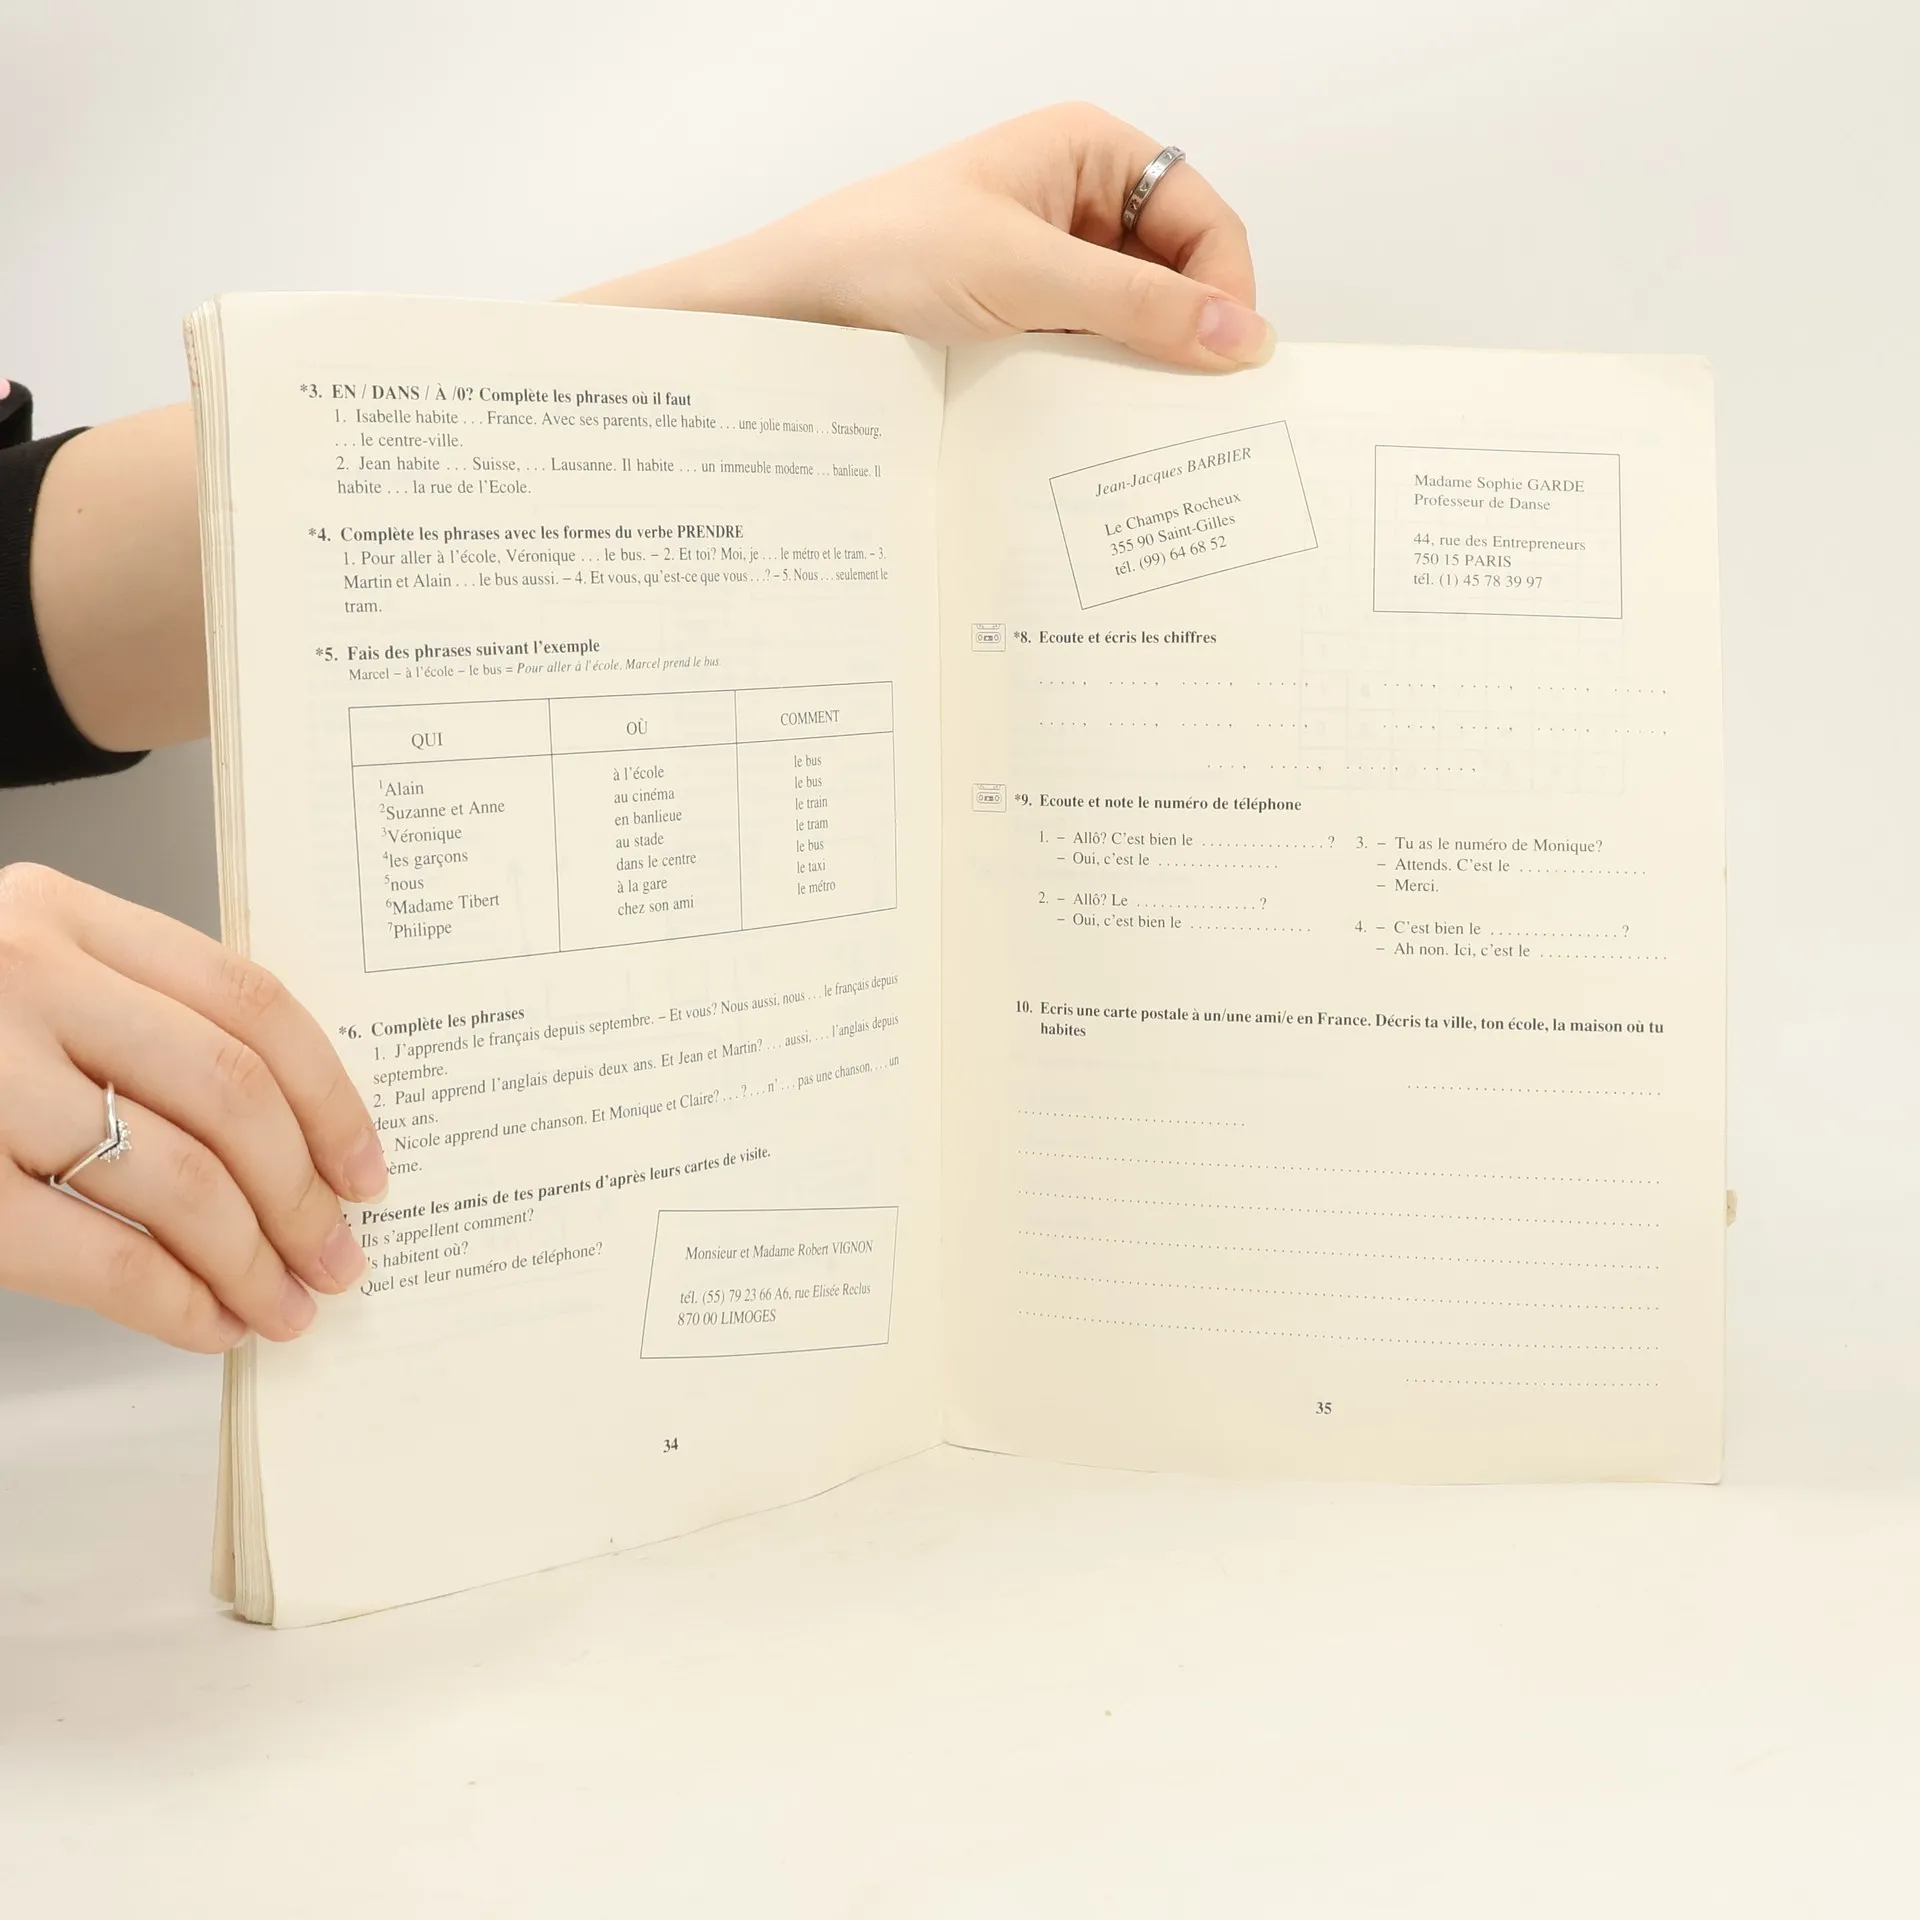 *3. EN / DANS / À /0? Complète les phrases où il faut
1. Isabelle habite ... France. Avec ses parents, elle habite ... une jolie maison ... Strasbourg,
... le centre-ville.
2. Jean habite ... Suisse, ... Lausanne. Il habite ... un immeuble moderne ... banlieue. Il
habite ... la rue de l'Ecole.
*4. Complète les phrases avec les formes du verbe PRENDRE
1. Pour aller à l'école, Véronique ... le bus. – 2. Et toi? Moi, je ... le métro et le tram. – 3.
Martin et Alain ... le bus aussi. – 4. Et vous, qu'est-ce que vous ...? – 5. Nous ... seulement le
tram.
*5. Fais des phrases suivant l'exemple
Marcel – à l'école – le bus = Pour aller à l'école, Marcel prend le bus.
QUI OÙ COMMENT
1Alain à l'école le bus
2Suzanne et Anne au cinéma le bus
3Véronique en banlieue le train
4les garçons au stade le tram
5nous dans le centre le bus
6Madame Tibert à la gare le taxi
7Philippe chez son ami le métro
*6. Complète les phrases
1. J'apprends le français depuis septembre. – Et vous? Nous aussi, nous ... le français depuis
septembre.
2. Paul apprend l'anglais depuis deux ans. Et Jean et Martin? ... aussi, ... l'anglais depuis
deux ans.
Nicole apprend une chanson. Et Monique et Claire? ...?... n' ... pas une chanson, ... un
ème.
. Présente les amis de tes parents d'après leurs cartes de visite.
Ils s'appellent comment?
's habitent où?
Quel est leur numéro de téléphone?
Monsieur et Madame Robert VIGNON
tél. (55) 79 23 66 A6, rue Elisée Reclus
870 00 LIMOGES
34
Jean-Jacques BARBIER
Le Champs Rocheux
355 90 Saint-Gilles
tél. (99) 64 68 52
Madame Sophie GARDE
Professeur de Danse
44, rue des Entrepreneurs
750 15 PARIS
tél. (1) 45 78 39 97
*8. Ecoute et écris les chiffres
...., ...., ...., ...., ...., ...., ...., ....,
...., ...., ...., ...., ...., ...., ...., ....,
...., ...., ...., ....,
*9. Ecoute et note le numéro de téléphone
1. – Allô? C'est bien le ...............?
– Oui, c'est le ...............
2. – Allô? Le ...............?
– Oui, c'est bien le ...............
3. – Tu as le numéro de Monique?
– Attends. C'est le ...............
– Merci.
4. – C'est bien le ...............?
– Ah non. Ici, c'est le ...............
10. Ecris une carte postale à un/une ami/e en France. Décris ta ville, ton école, la maison où tu
habites
35